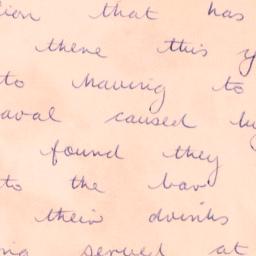 tion that has
there this y
to having to
aval caused by
found they
to the bar
their drinks
ng served at